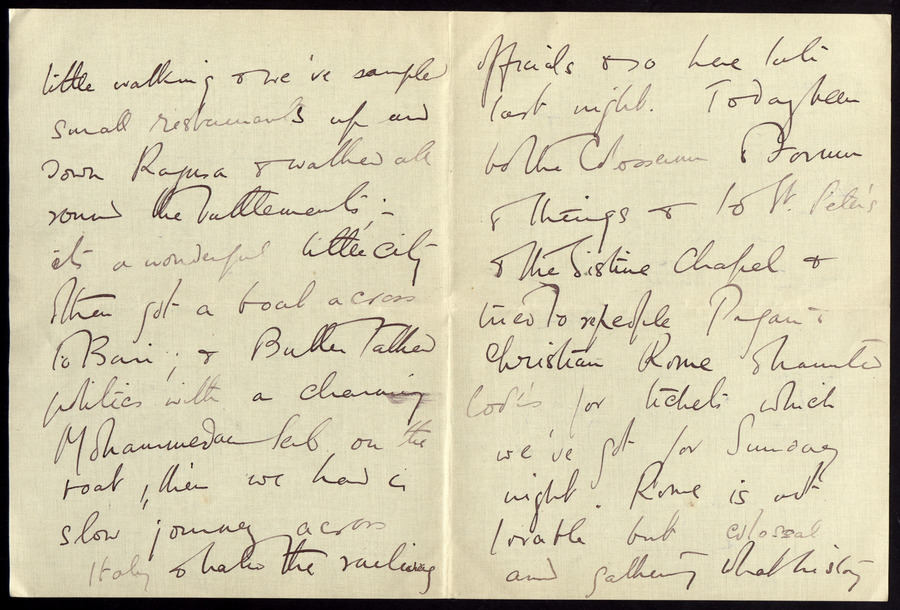 little walking & we've sampled
small restaurants up and
down Ragusa & walked all
round the battlements; -
it's a wonderful little city
& then got a boat across
to Bari; & Butler talked
politics with a charming
Mohammedan Serb on the
boat, then we had a
slow journey across
Italy & hated the railway
officials & so here late
last night. Today been
to the Colosseum & Forum
& things & to St. Peter's
& the Sistine Chapel &
tried to repeople Pagan &
Christian Rome & haunted
Cook's for tickets which
we've got for Sunday
night. Rome is not
lovable but colossal
and gathering what history